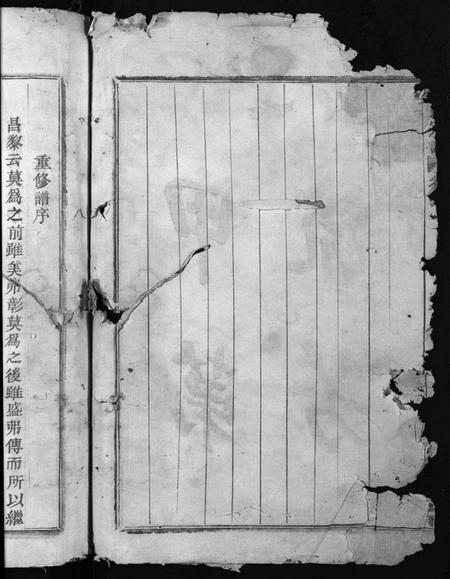 重修譜序
昌黎云莫爲之前雖美弗彰莫爲之後雖盛弗傳而所以繼